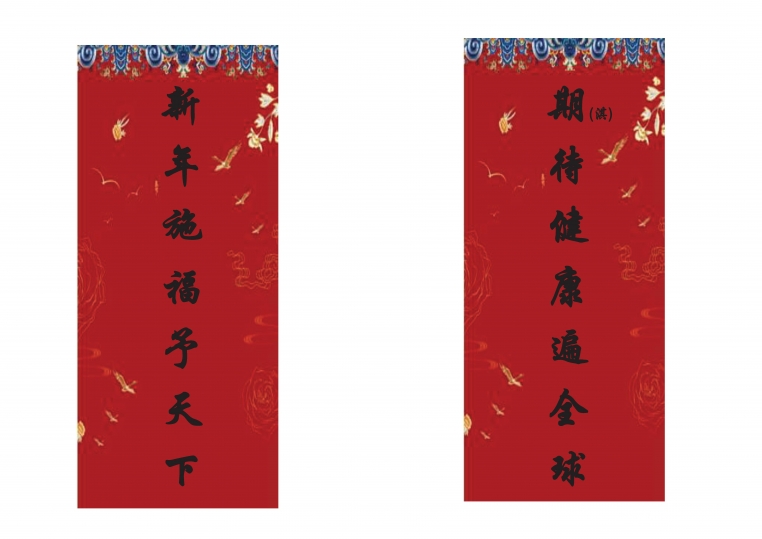 新年施福予天下
期(滨)待健康遍全球